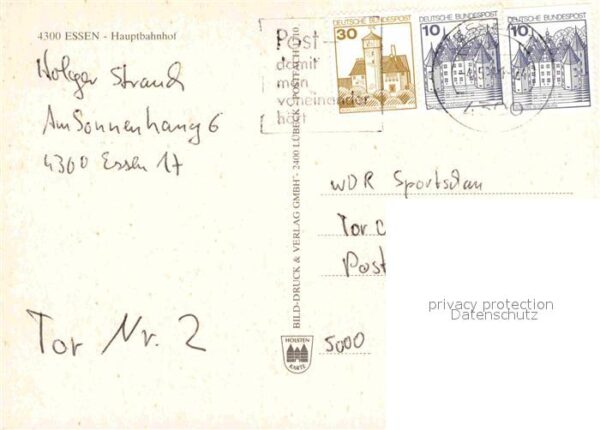 4300 ESSEN - Hauptbahnhof
Holger Strauch
Am Sonnenhang 6
4300 Essen 17
Tor Nr. 2
BILD-DRUCK & VERLAG GMBH · 2400 LÜBECK · POSTFACH
HOLSTEN
KARTE
Post
damit
man
voneinander
hört
30
DEUTSCHE BUNDESPOST
10
DEUTSCHE BUNDESPOST
10
DEUTSCHE BUNDESPOST
WDR Sportschau
Tor
Post
5000
privacy protection
Datenschutz